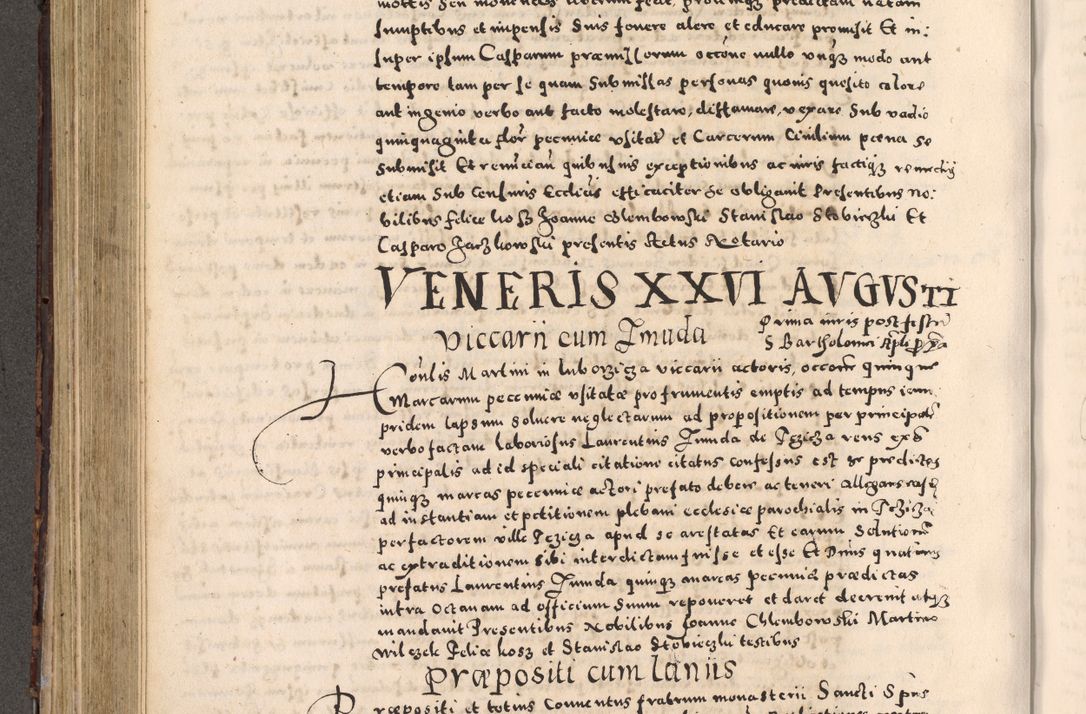 sumptibus et impensis suis fovere alere et educare promisit Et in:
super ipsum Casparum præmissorum occōne nullo unq̃ modo aut
tempore tam per se quam submissas personas quovis quesito colore
aut ingenio verbo aut facto molestare, diffamare, vexare sub vadio
quinquaginta flor pecuniæ usitat et Carcerum Civilium pœna se
submisit Et renūciaū quibusvis exceptionibus ac iuris factiq̃ remedijs
etiam sub Censuris Ecclīcis efficaciter se obligavit Presentibus No:
bilibus Felice Joanne Chlembowski Stanislao Et
Casparo presentis Actus Notario
VENERIS XXVI AVGVSTI
Prima iuris post festū
S Bartholomei Apli
Viccarii cum Zmuda
Honlis Martini in viccarii actoris, occōne quinque
Marcarum pecuniæ usitatæ pro frumentis emptis ad tempus iam
pridem lapsum solvere neglectarum ad propositionem per principalē
verbo factam laboriosus Laurentius Zmuda de reus
principalis ad id speciali citatione citatus confessus est se predictas
quinq̃ marcas pecuniæ actori prefato debere ac teneri Allegans
ad instantiam et petitionem plebani ecclesiæ parochialis in
per factorem villæ apud se arestatas Et earum solutionē
ac extraditionem sibi interdictam fuisse et esse Et Dnus
prefatus Laurentius Zmuda quinq̃ marcas pecuniæ prædictas
intra Octavam ad officium suum reponeret et daret decrevit atq̃
mandavit Presentibus Nobilibus Joanne Chlembowski Martino
Wilczek Felice et Stanislao testibus
Præpositi cum laniis
Præpositi et totius Conventus fratrum monasterii Sancti Spūs